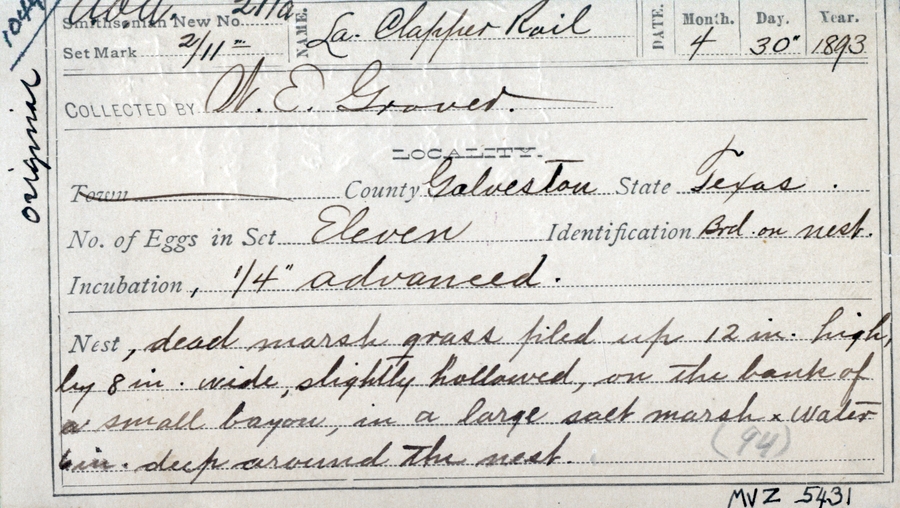 Smithsonian New No. 211a
Set Mark 2/11
NAME. La. Clapper Rail
DATE. Month. Day. Year.
4 30" 1893
original
COLLECTED BY W. E. Grover.
LOCALITY.
Town County Galveston State Texas.
No. of Eggs in Set Eleven Identification Brd. on nest.
Incubation, 1/4" advanced.
Nest, dead marsh grass piled up 12 in. high,
by 8 in. wide, slightly hollowed, on the bank of
a small bayou, in a large salt marsh x Water
6 in. deep around the nest.
(94)
MVZ 5431